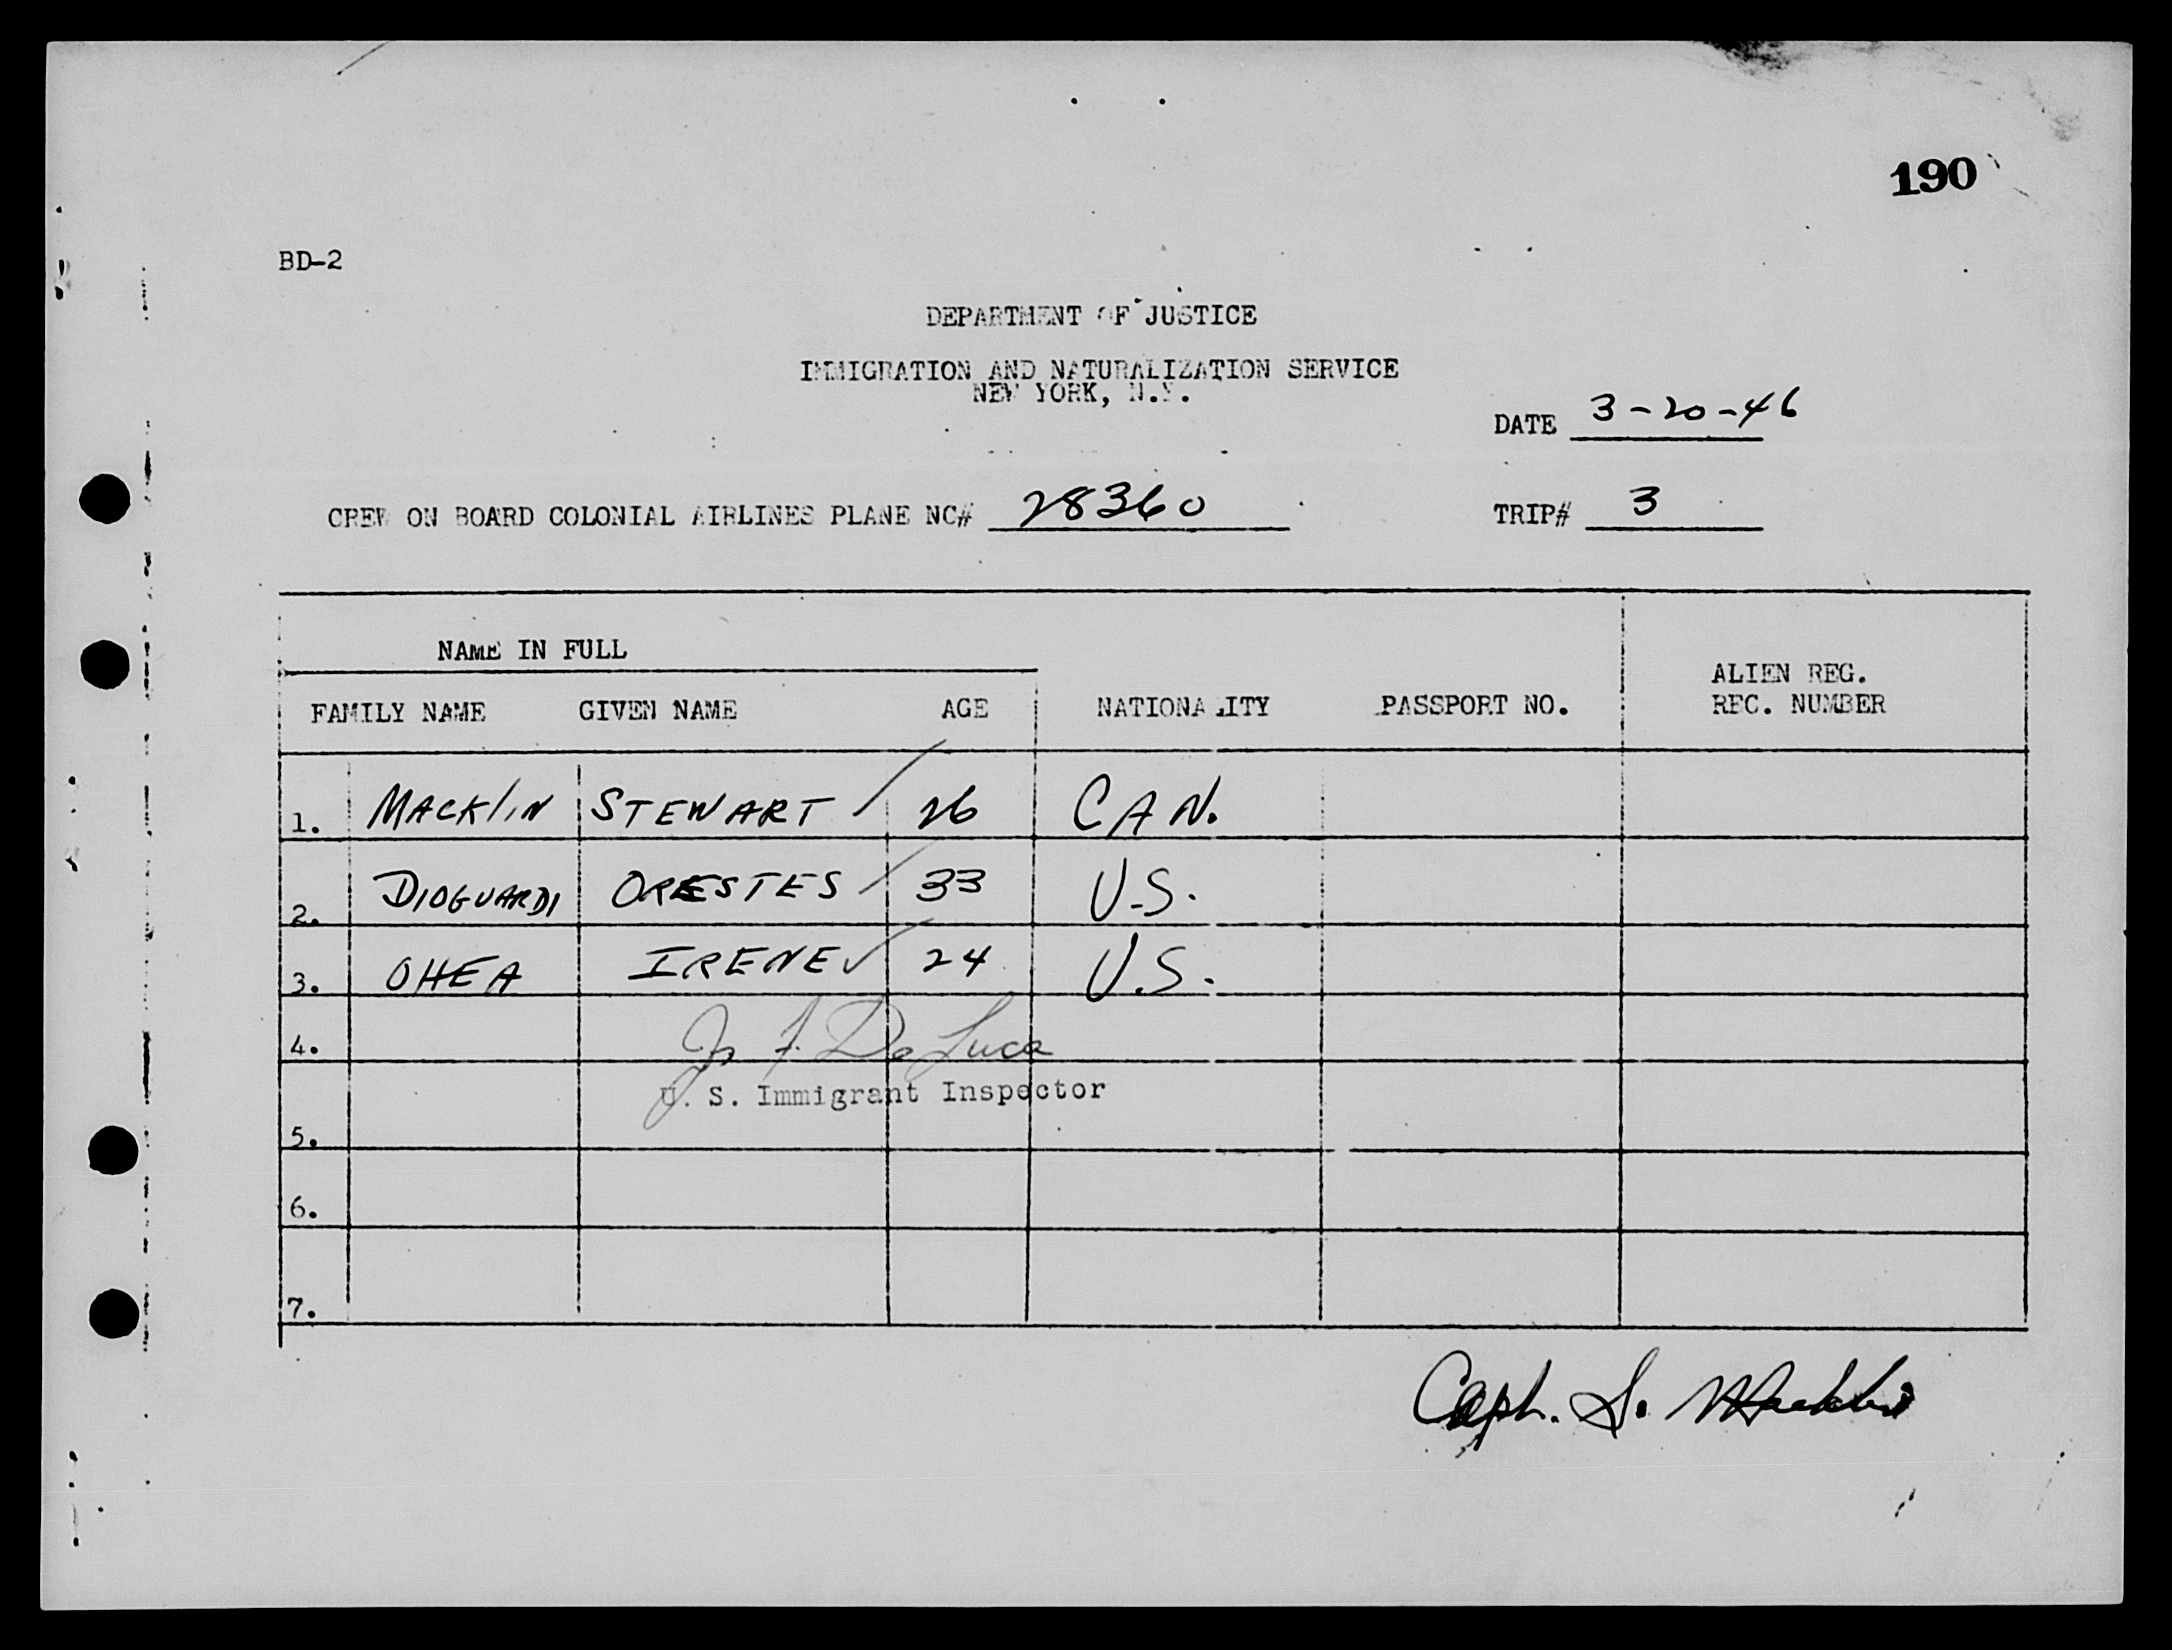 190
BD-2
DEPARTMENT OF JUSTICE
IMMIGRATION AND NATURALIZATION SERVICE
NEW YORK, N.Y.
DATE 3-20-46
CREW ON BOARD COLONIAL AIRLINES PLANE NC# 28360 TRIP# 3
NAME IN FULL
ALIEN REG.
FAMILY NAME GIVEN NAME AGE NATIONALITY PASSPORT NO. REC. NUMBER
1. MACKLIN STEWART 26 CAN.
2. DIOGUARDI ORESTES 33 U.S.
3. OHEA IRENE 24 U.S.
4. J. F. De Luca
U. S. Immigrant Inspector
5.
6.
7.
Capt. S. Macklin